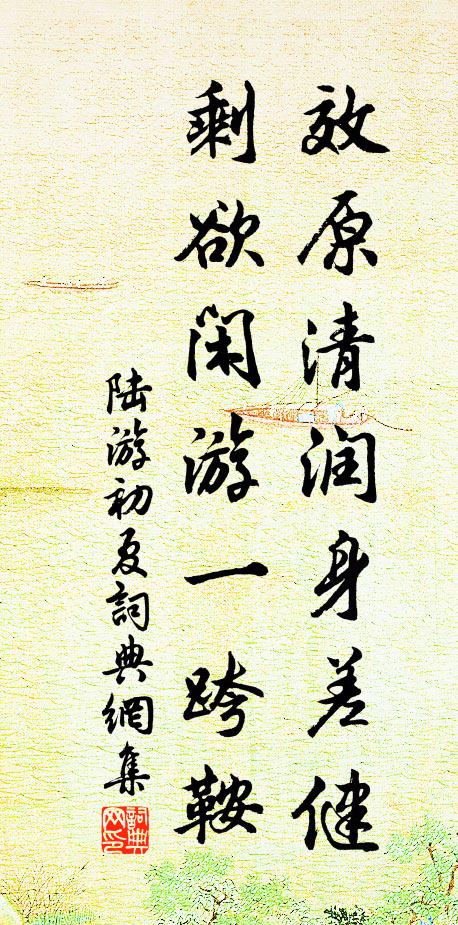 效原清润身差健
剩欲闲游一跨鞍
陆游初夏詞典網集
詞典
网印